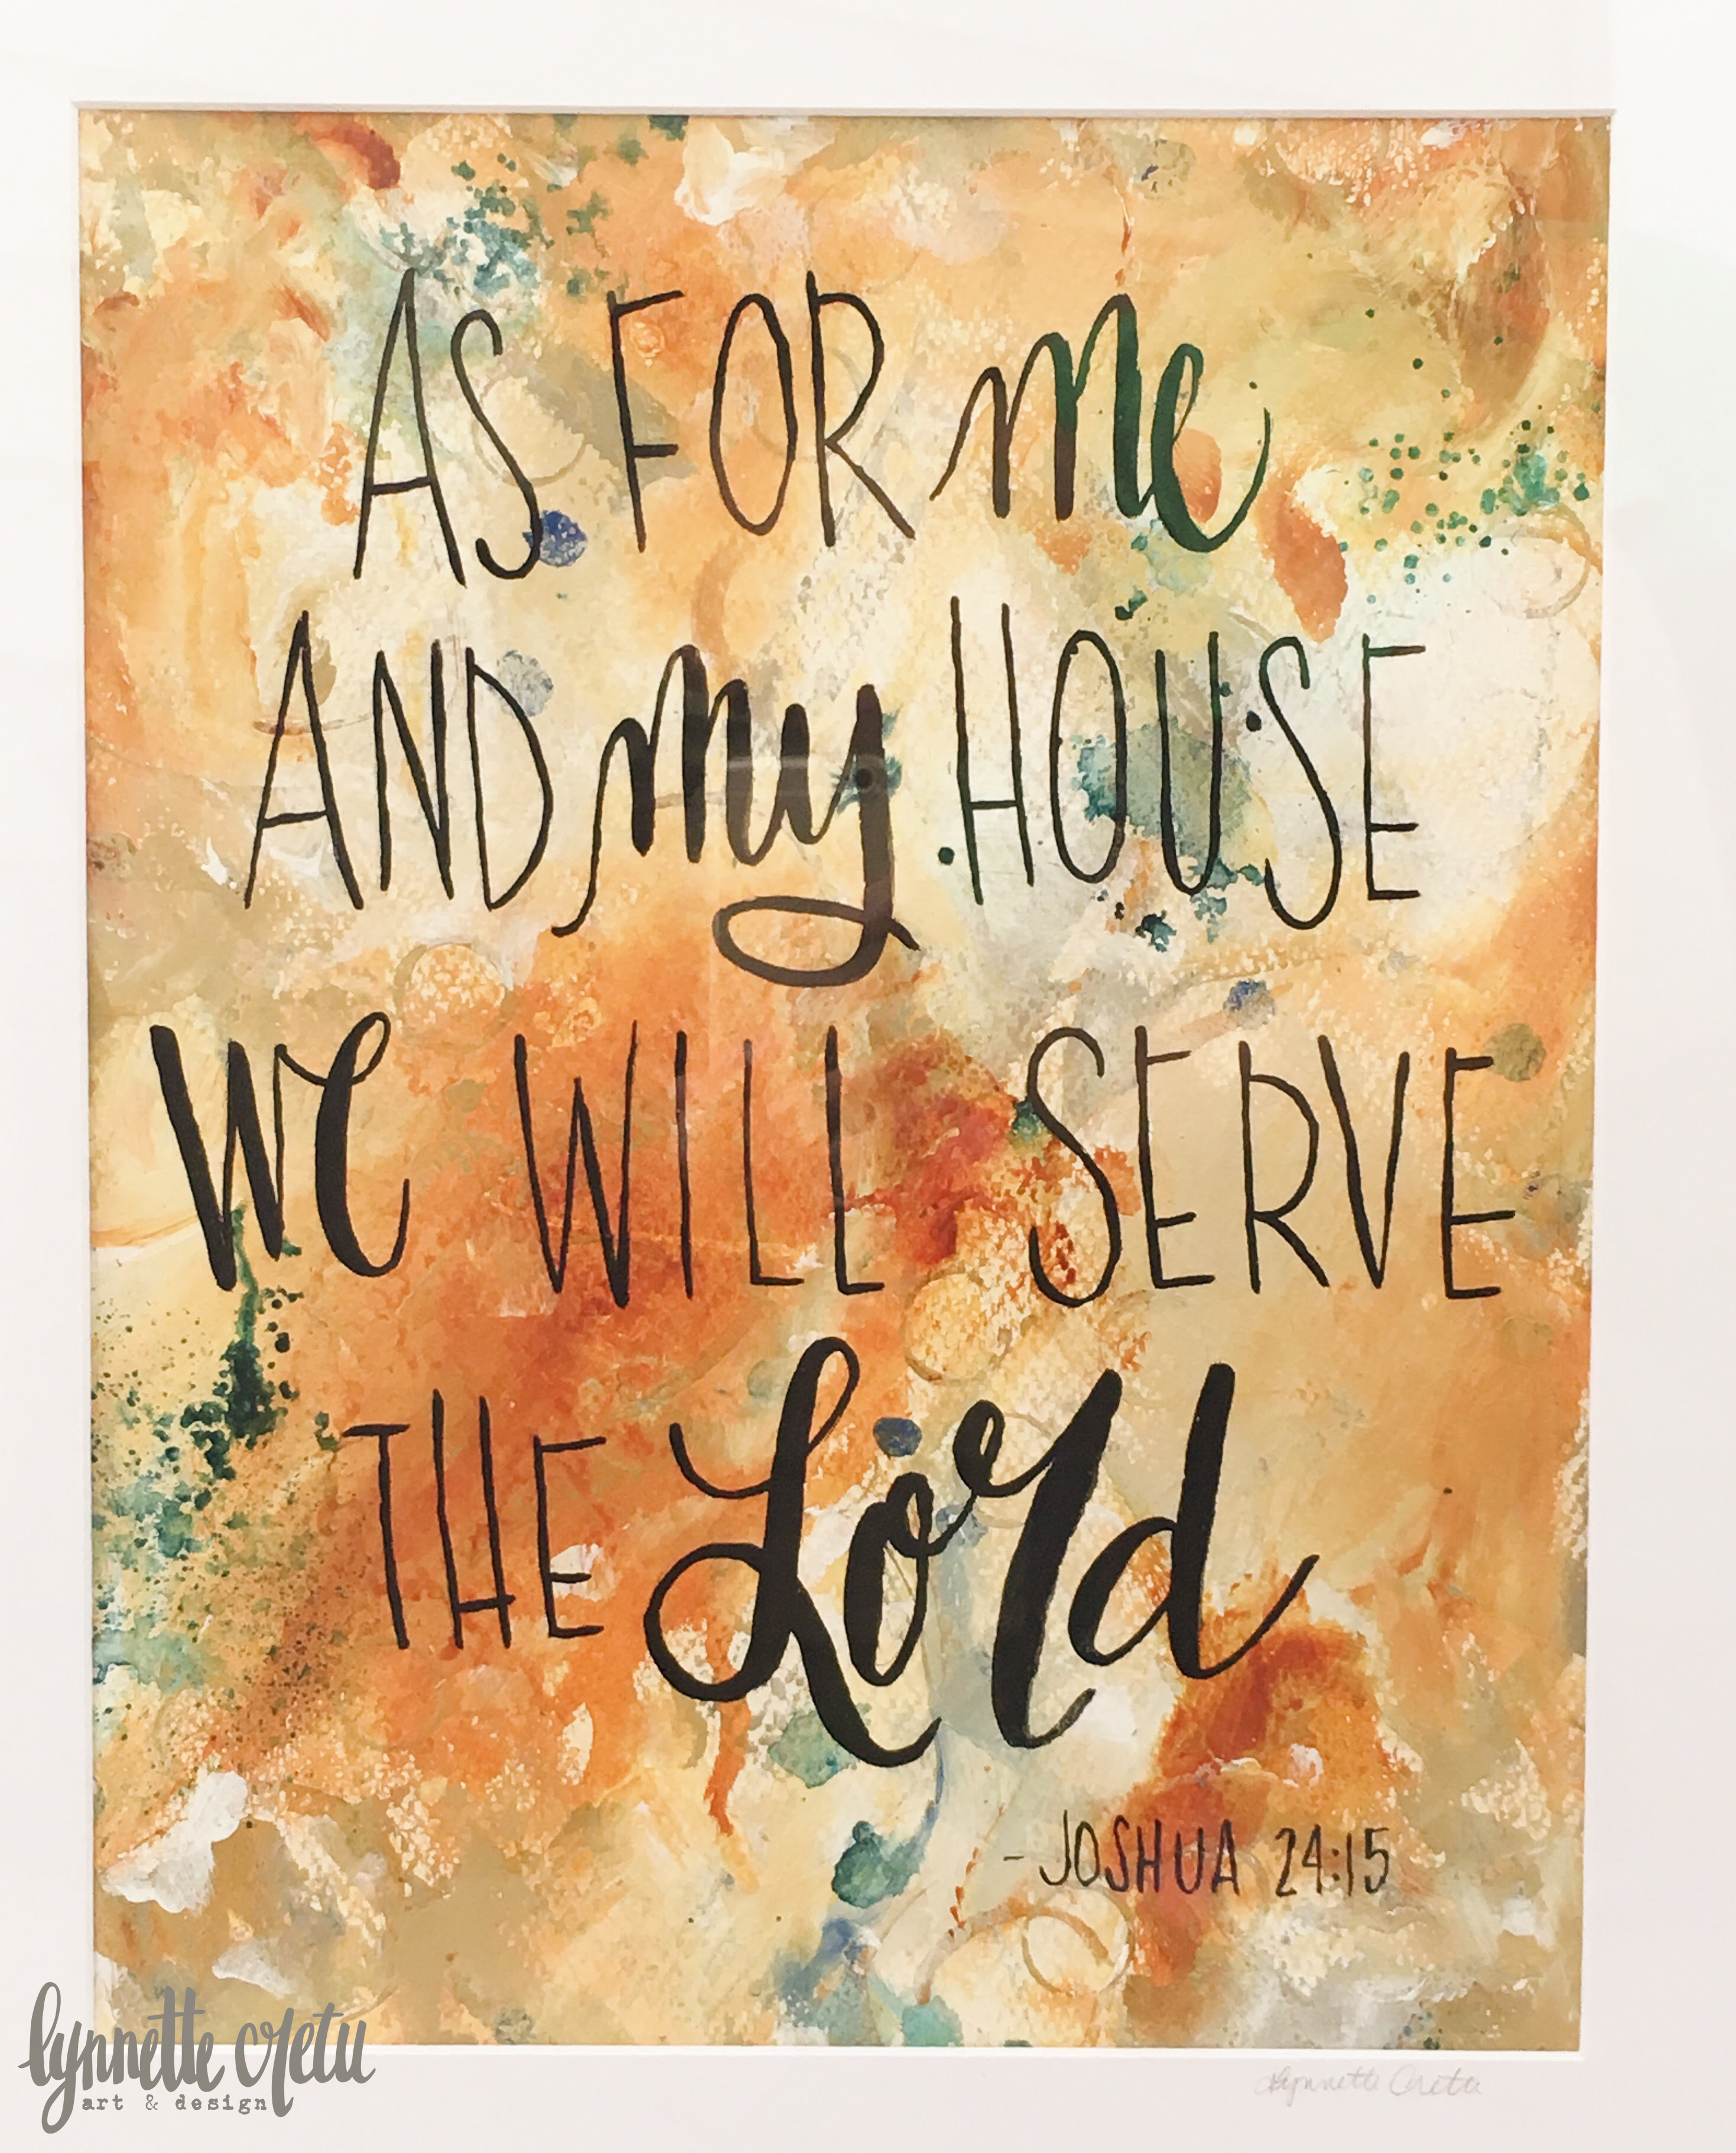 AS FOR me
AND my HOUSE
we WILL SERVE
THE Lord
-JOSHUA 24:15
lynnette cretu
art & design
Lynnette Cretu